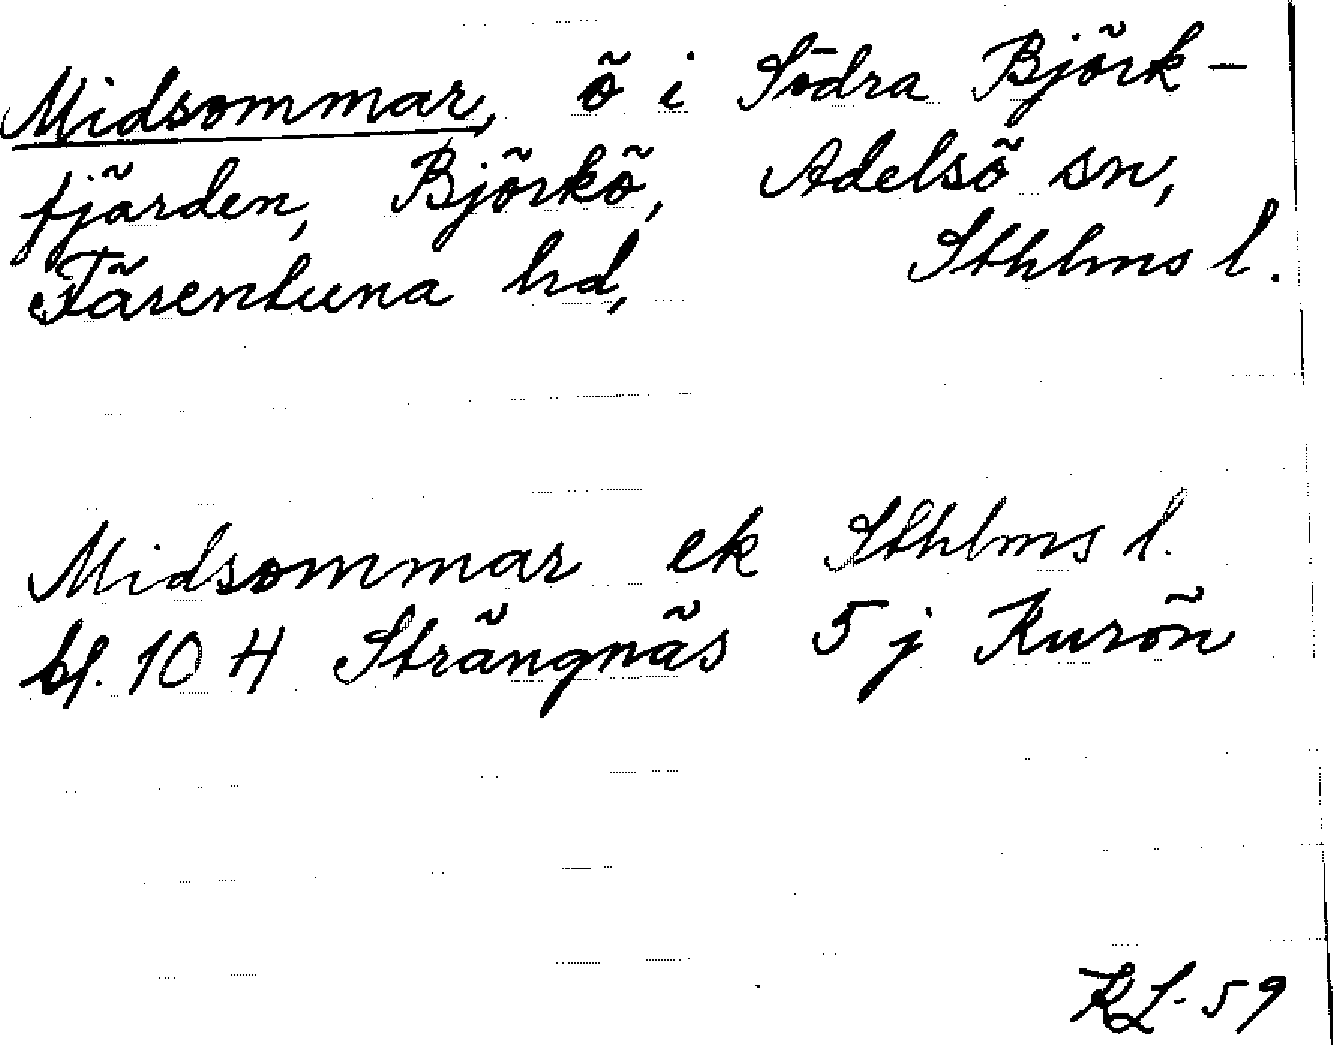 Midsommar, ö i Södra Björk-
fjärden, Björkö, Adelsö sn,
Färentuna hd, Sthlms l.
Midsommar ek Sthlms l.
bl. 10 H Strängnäs 5 j Kurön
KL-59